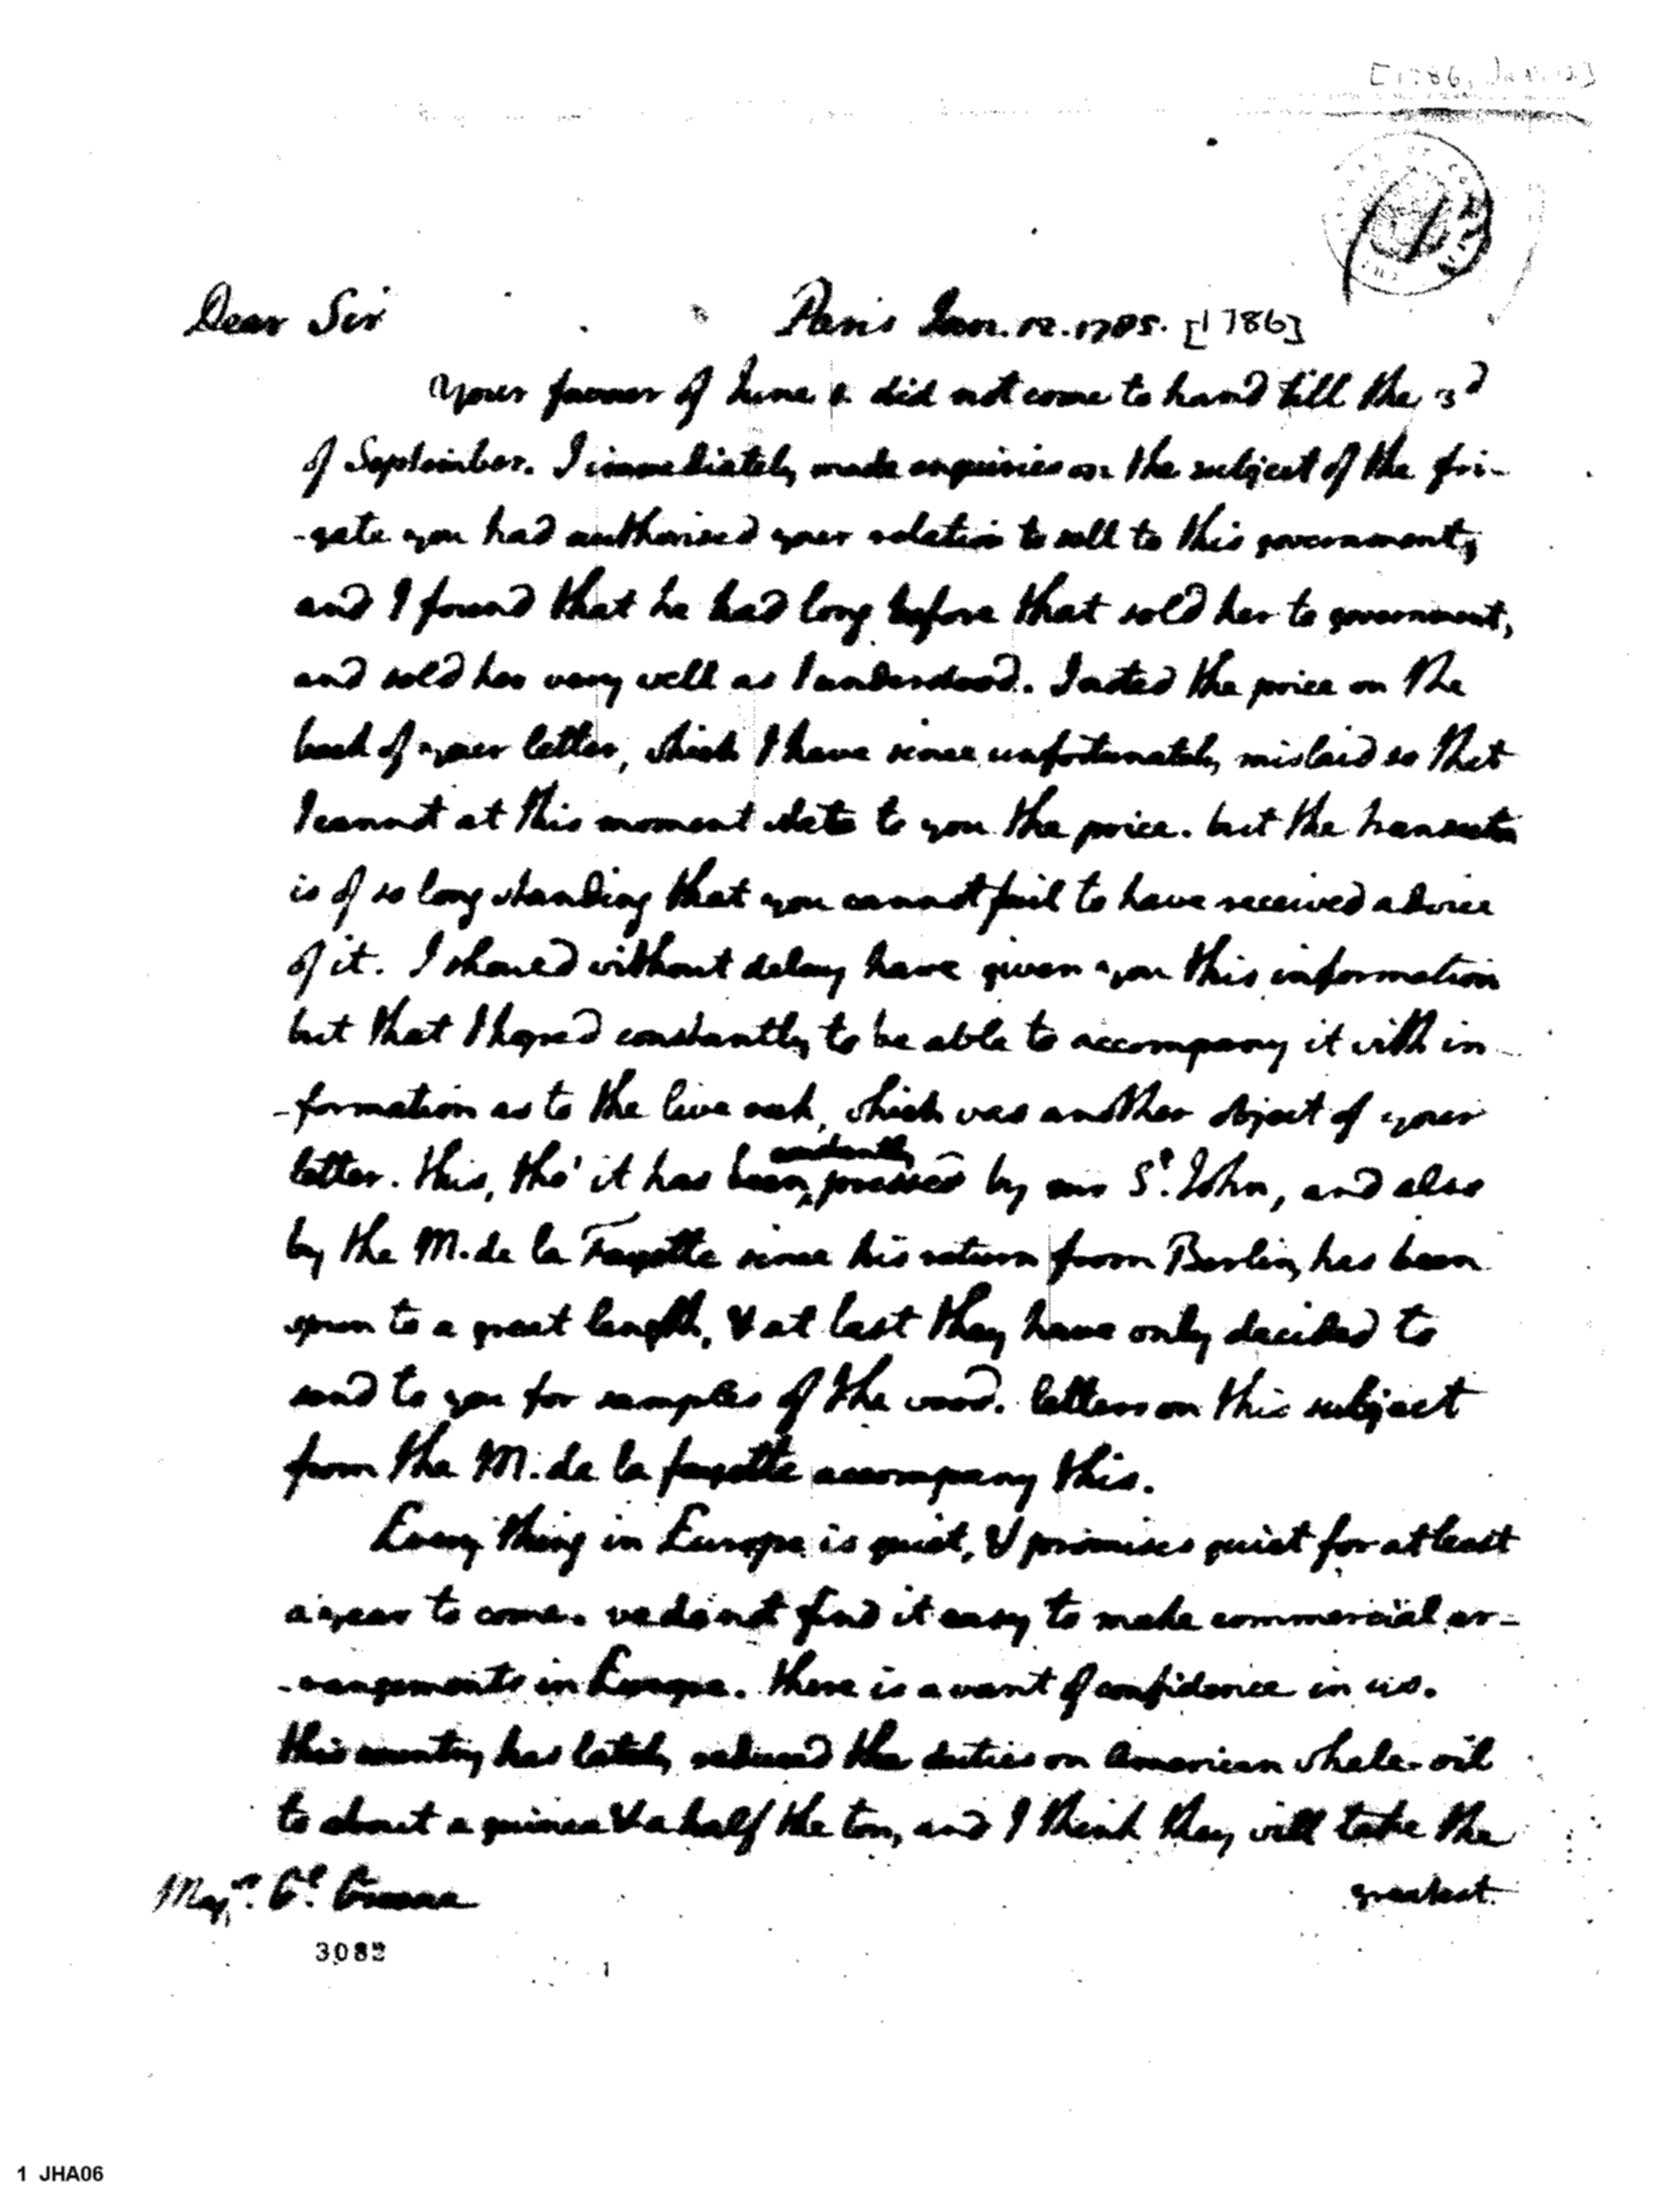 [1786, Jan. 12]
113
Dear Sir
Paris Jan. 12. 1785. [1786]
Your favor of June did not come to hand till the 3d
of September. I immediately made enquiries on the subject of the fri-
-gate you had authorised your relation to sell to this government,
and I found that he had long before that sold her to government,
and sold her very well as I understood. I noted the price on the
back of your letter, which I have since unfortunately mislaid so that
I cannot at this moment state to you the price. but the transaction
is of so long standing that you cannot fail to have received advice
of it. I should without delay have given you this information
but that I hoped constantly to be able to accompany it with in-
-formation as to the live oak, which was another object of your
letter. this, tho' it has been constantly pressed by mr St. John, and also
by the M. de la Fayette since his return from Berlin, has been
spun to a great length, & at last they have only decided to
send to you for samples of the wood. letters on this subject
from the M. de la fayette accompany this.
Every thing in Europe is quiet, & promises quiet for at least
a year to come. we do not find it easy to make commercial ar-
-rangements in Europe. there is a want of confidence in us.
this country has lately reduced the duties on American whale-oil
to about a guinea & a half the ton, and I think they will take the
greatest
Majr. Gl. Greene
3082
1
1 JHA06